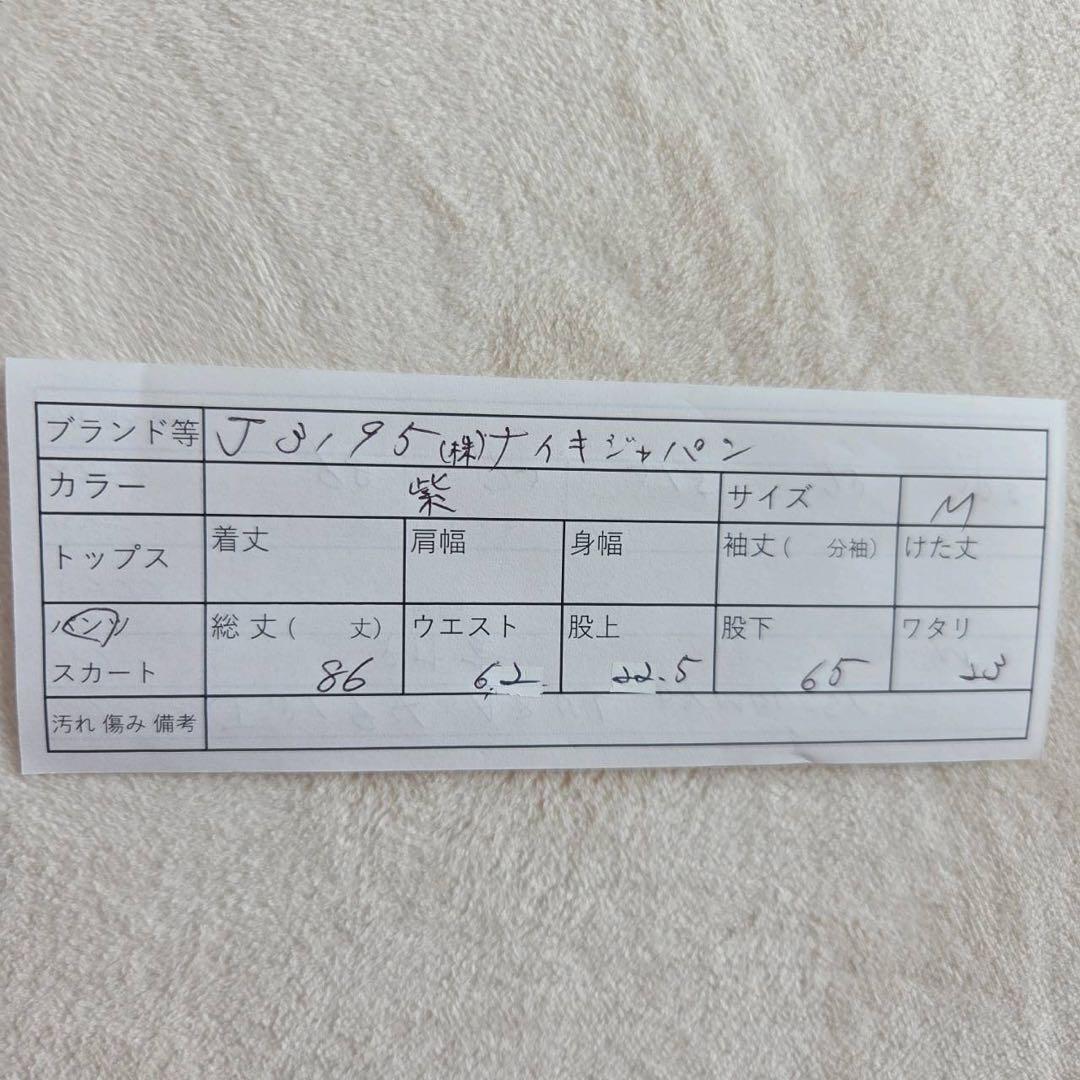 ブランド等 J3195(株)ナイキジャパン
カラー 紫 サイズ M
トップス 着丈 肩幅 身幅 袖丈( 分袖) けた丈
パンツ 総丈( 丈) ウエスト 股上 股下 ワタリ
スカート 86 62 22.5 65 23
汚れ 傷み 備考